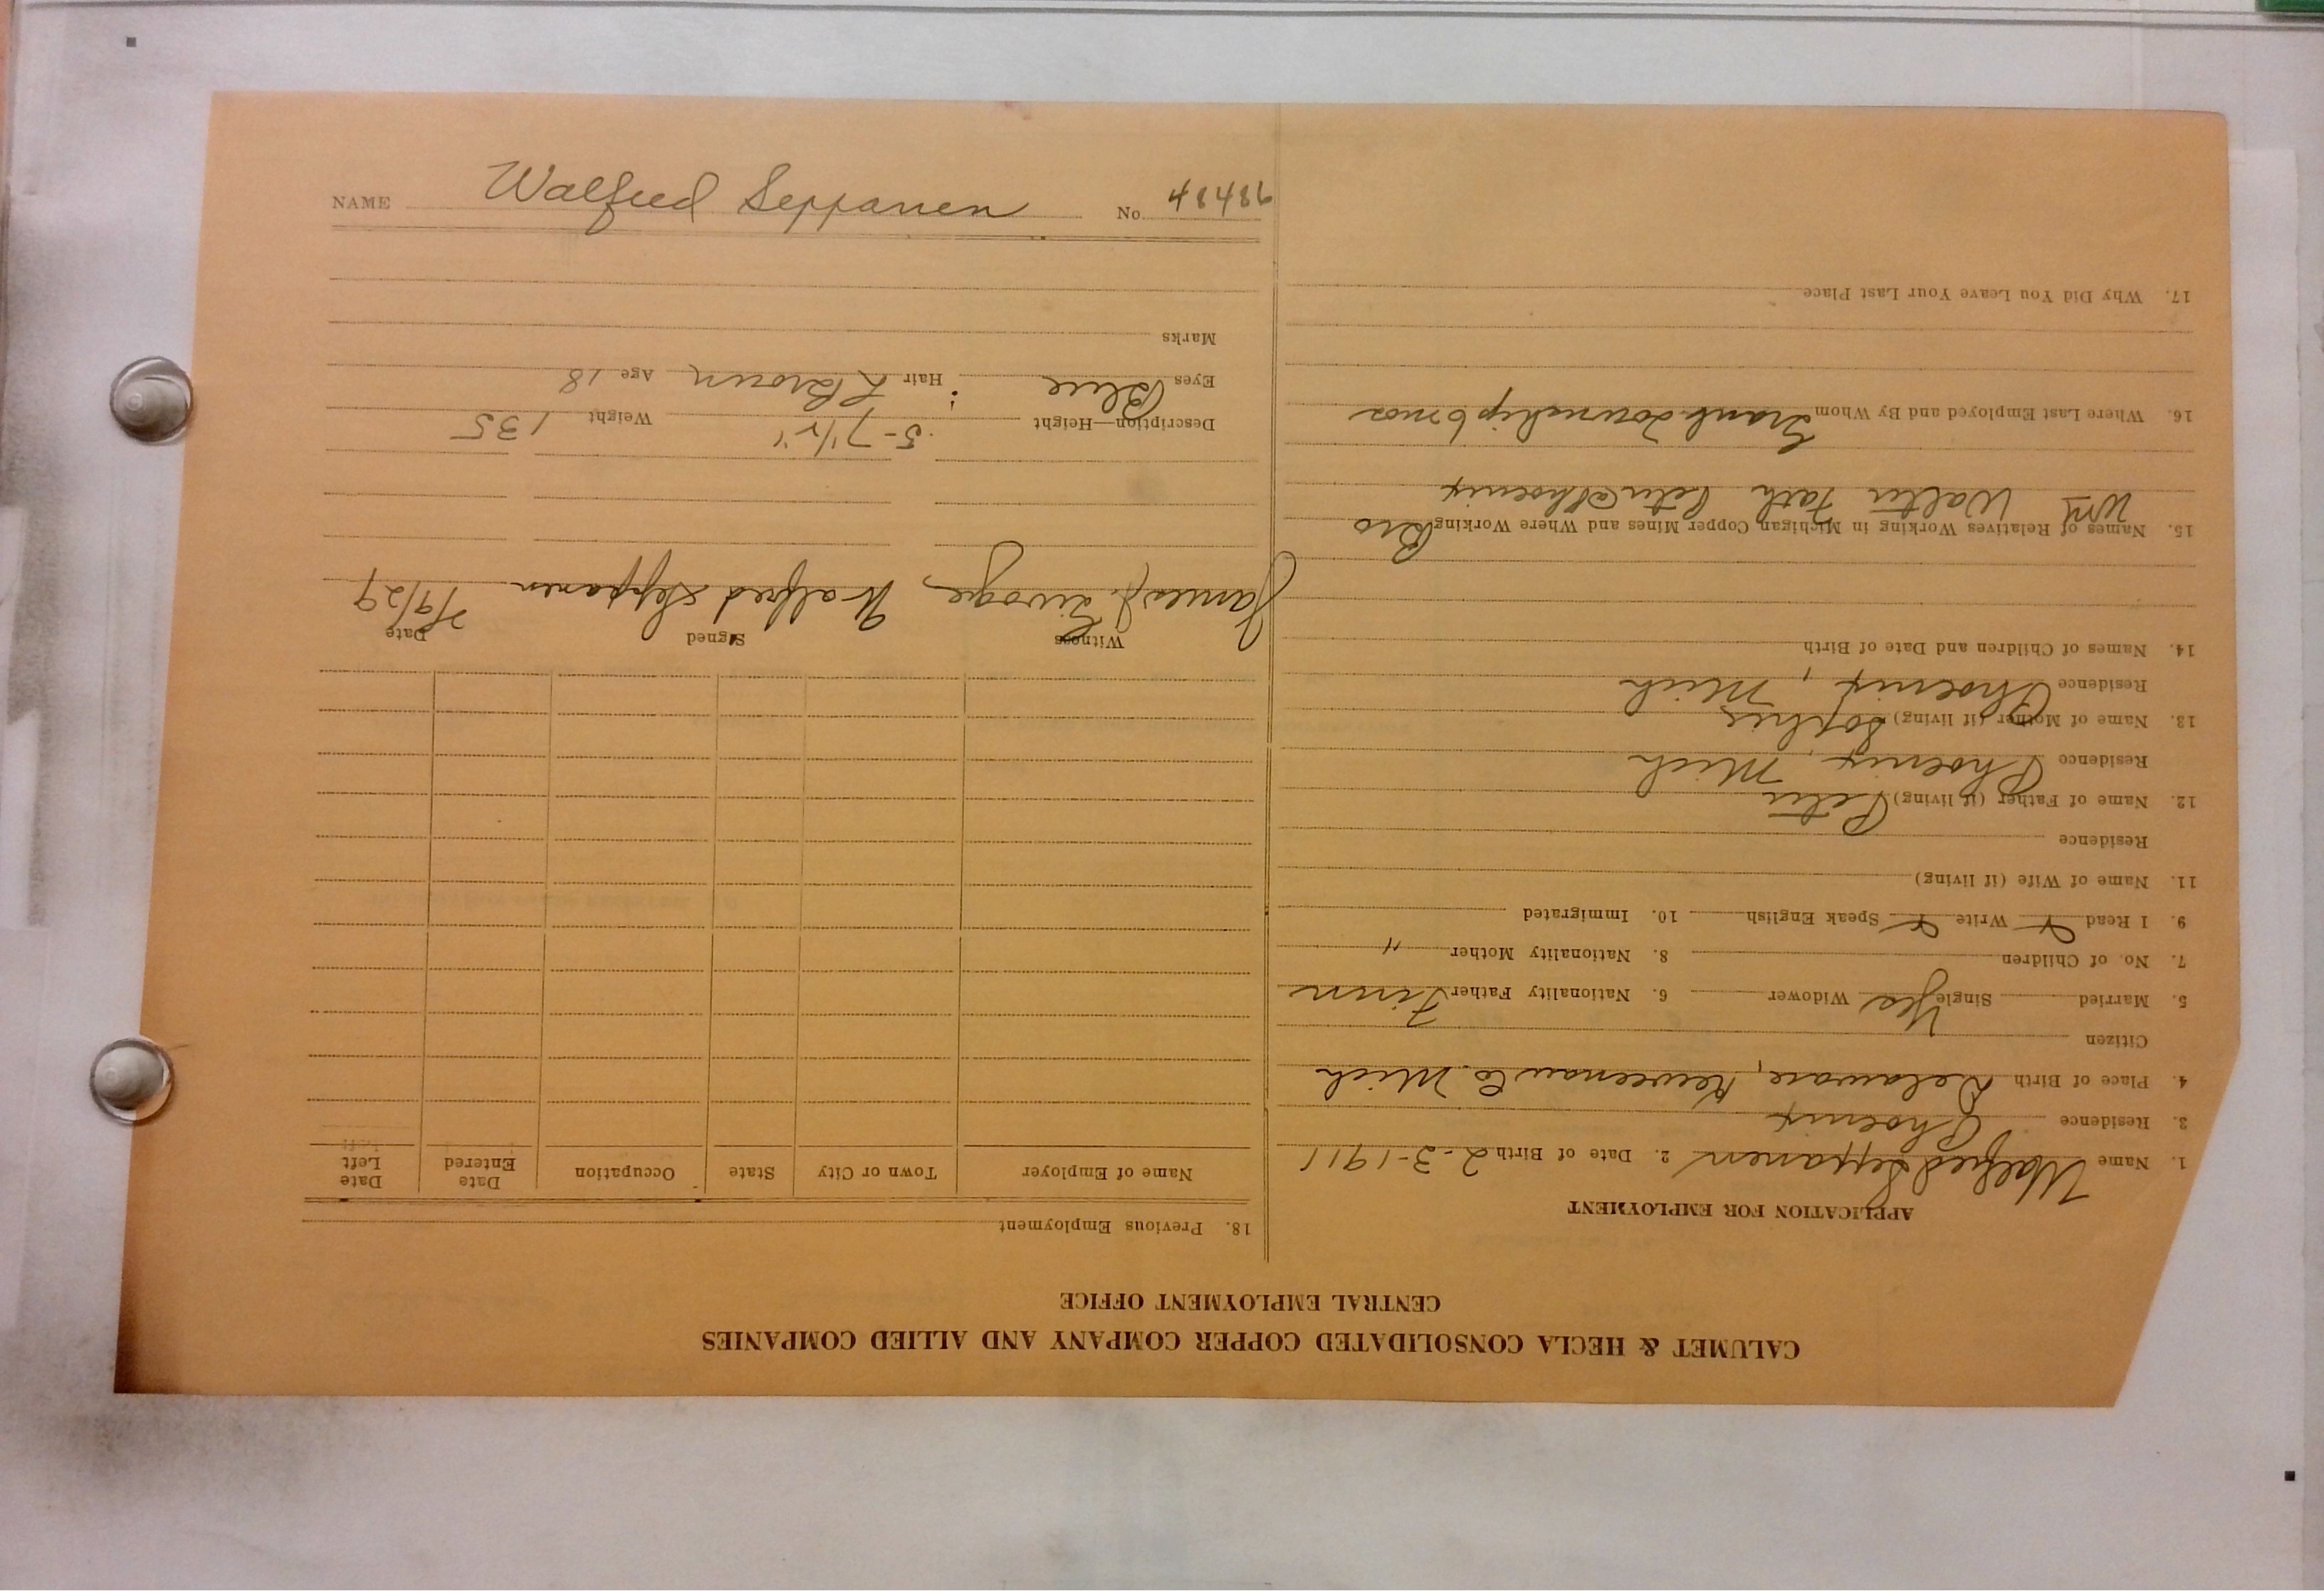 NAME Walfred Seppanen No. 48486
CALUMET & HECLA CONSOLIDATED COPPER COMPANY AND ALLIED COMPANIES
CENTRAL EMPLOYMENT OFFICE
APPLICATION FOR EMPLOYMENT
1. Name Walfred Seppanen 2. Date of Birth 2-3-1911
3. Residence Phoenix
4. Place of Birth Delaware, Keweenaw Co. Mich
Citizen
5. Married Single Yes Widower 6. Nationality Father Finn
7. No. of Children 8. Nationality Mother "
9. I Read Write Speak English 10. Immigrated
11. Name of Wife (if living)
Residence
12. Name of Father (if living) Peter
Residence Phoenix, Mich
13. Name of Mother (if living) Sophie
Residence Phoenix, Mich
14. Names of Children and Date of Birth
15. Names of Relatives Working in Michigan Copper Mines and Where Working Bro
Wm Walter Fath Peter Phoenix
16. Where Last Employed and By Whom Grant Township 6 mos
17. Why Did You Leave Your Last Place
18. Previous Employment
Name of Employer Town or City State Occupation Date Entered Date Left
Witness Signed Date
James J. Walfred Seppanen 7/9/29
Description—Height 5-7 1/2" Weight 135
Eyes Blue Hair L Brown Age 18
Marks